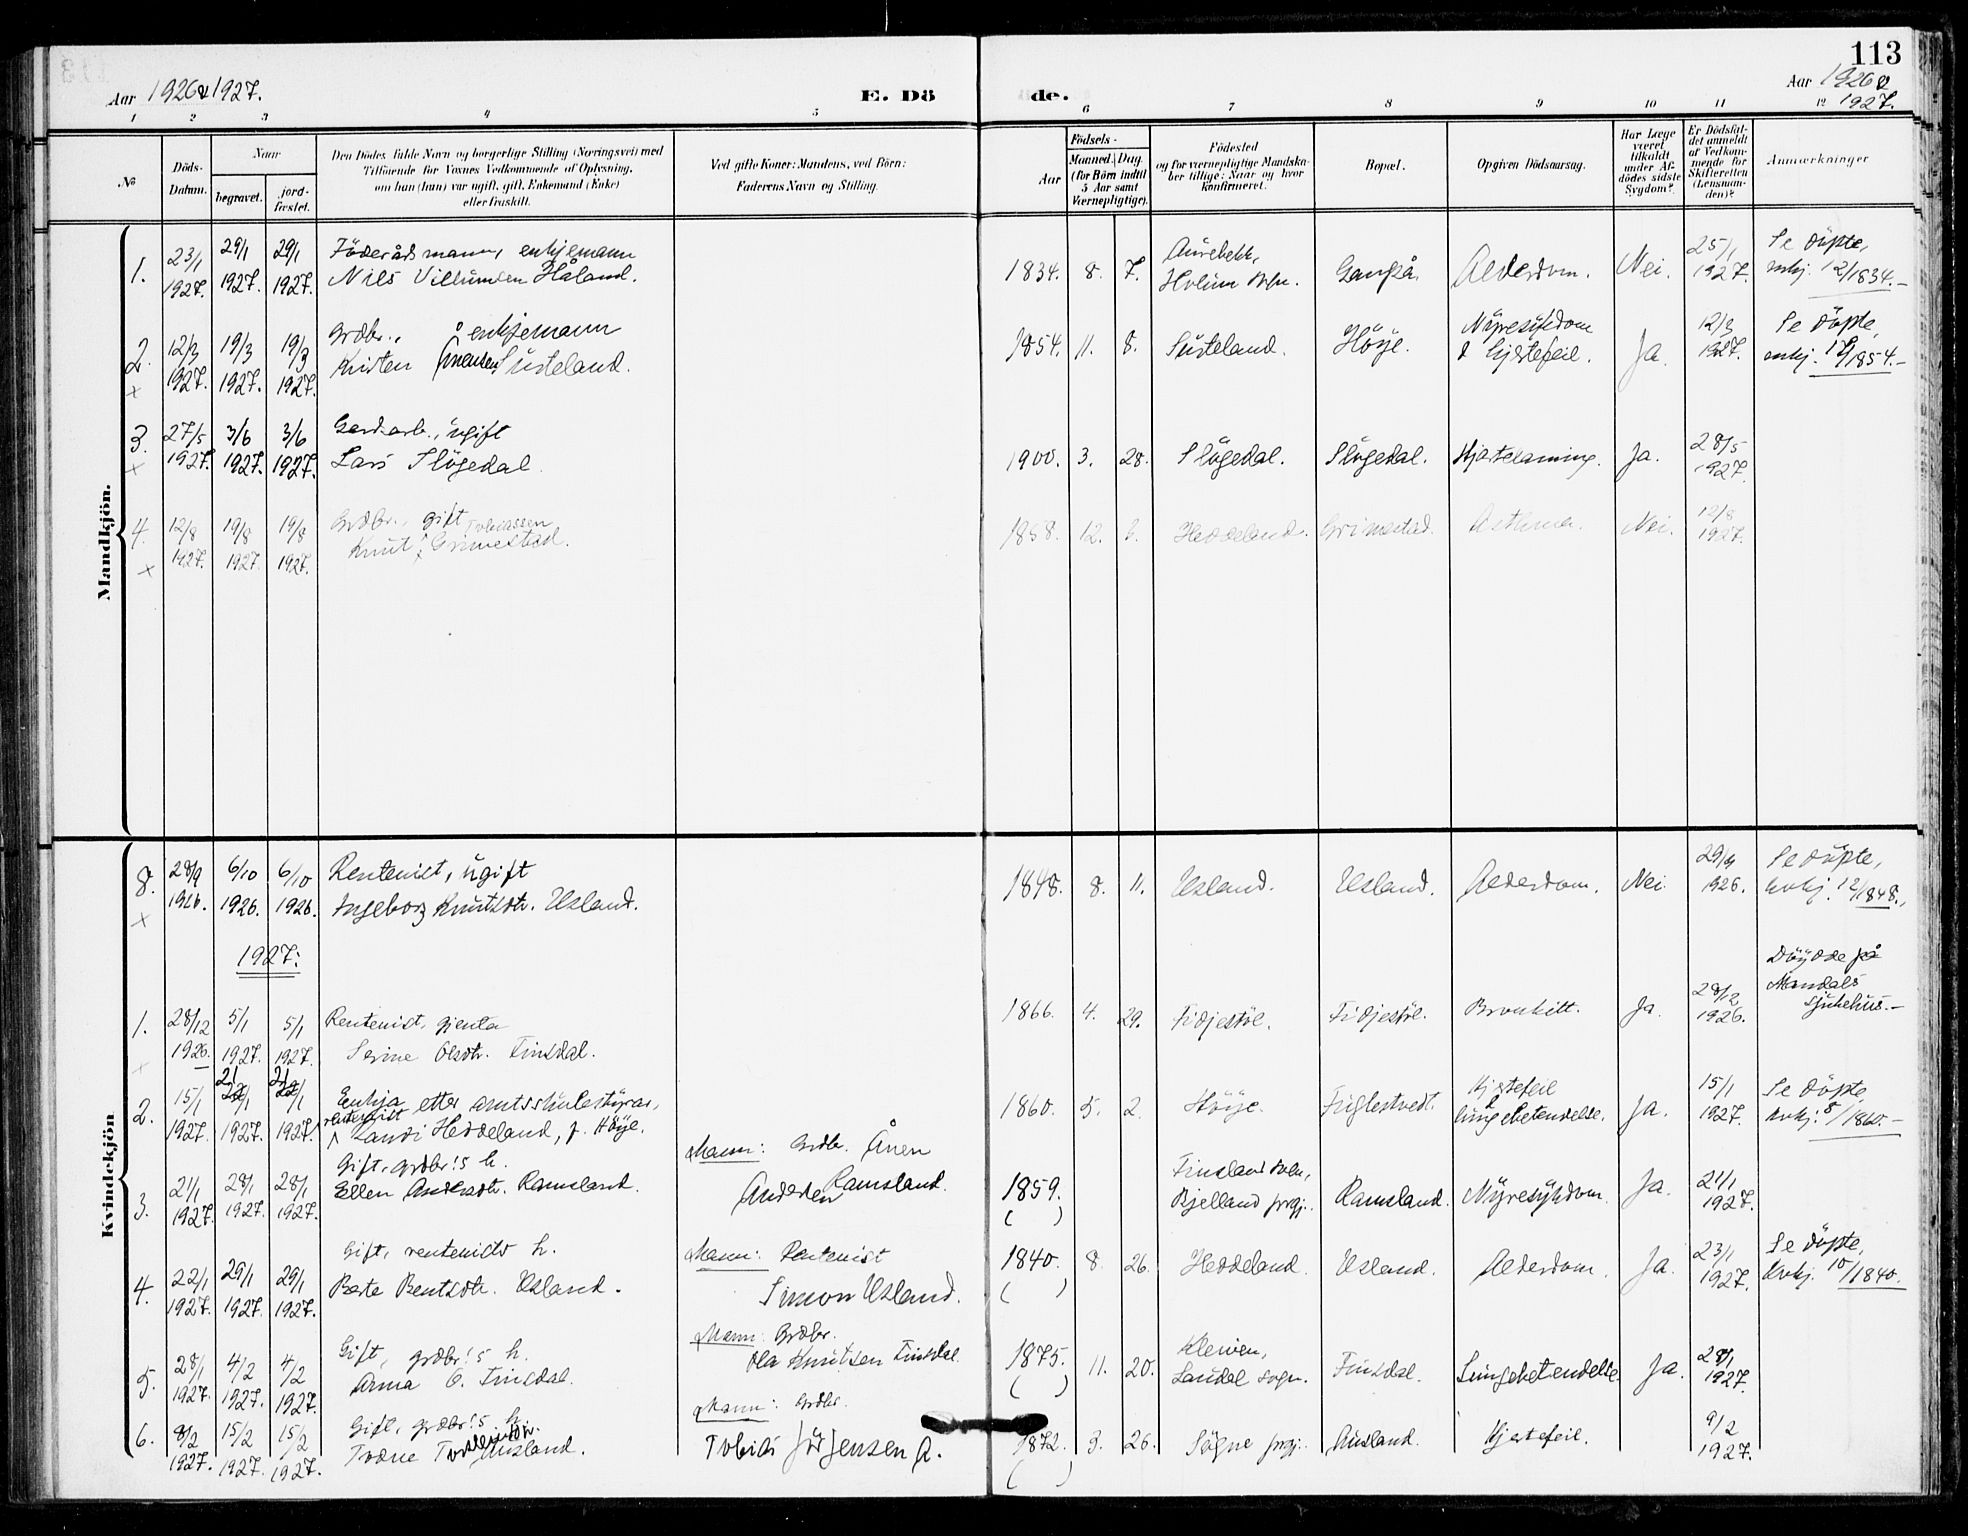 113
Aar 1926 & 1927.
E. Dö
de.
Aar 1926 &
1927.
1 2 3 4 5 6 7 8 9 10 11 12
No
Döds-
Datum.
Naar
begravet.
jord-
fæstet.
Den Dödes fulde Navn og borgerlige Stilling (Næringsvei) med
Tilföiende for Voxnes Vedkommende af Oplysning,
om han (hun) var ugift, gift, Enkemand (Enke)
eller fraskilt.
Ved gifte Koner: Mandens, ved Börn:
Faderens Navn og Stilling.
Aar
Födsels-
Maaned. Dag.
(for Börn indtil
5 Aar samt
Værnepligtige).
Födested
og for værnepligtige Mandska-
ber tillige: Naar og hvor
konfirmeret.
Bopæl.
Opgiven Dödsaarsag.
Har Læge
været
tilkaldt
under Af-
dödes sidste
Sygdom?
Er Dödsfal-
det anmeldt
af Vedkom-
mende for
Skifteretten
(Lensman-
den)?
Anmærkninger
Mandkjön.
1. 23/1 29/1 29/1 Föderådsmann, enkjemann
1927. 1927. 1927. Nils Villumsen Håland.
1834. 8. 7. Holum sogn. Gangså. Alderdom. Nei. 25/1 1927.
Se döpte,
mkj. 12/1834.-
2. 12/3 19/3 19/3 Grdbr., enkjemann
1927. 1927. 1927. Kristen Ånensen Susteland.
1854. 11. 8. Susteland. Höye. Nyresykdom
& hjertefeil. Ja. 12/3 1927.
Se döpte,
mkj. /1854.-
3. 27/5 3/6 3/6 Gardsarb., ugift
1927. 1927. 1927. Lars Slögedal.
1900. 3. 28. Slögedal. Slögedal. Hjertelamming. Ja. 28/5 1927.
4. 12/8 19/8 19/8 Grdbr., gift
1927. 1927. 1927. Knut Tobiassen Grimestad.
1858. 12. 6. Heddeland. Grimestad. Asthma. Nei. 12/8 1927.
Kvindekjön
8. 28/9 6/10 6/10 Rentenist, ugift
1926. 1926. 1926. Ingeborg Knutsdtr. Usland.
1848. 8. 11. Usland. Usland. Alderdom. Nei. 29/9 1926.
Se döpte,
kvkj. 12/1848.,
1927:
1. 28/12 5/1 5/1 Rentenist, gjenta
1926. 1927. 1927. Serine Olsdtr. Finsdal.
1866. 4. 29. Fidjestöl. Fidjestöl. Bronkitt. Ja. 28/12 1926.
Döydde på
Mandals
sjukehus.-
2. 15/1 21/1 21/1 Enkja etter amtsskulestyrar,
1927. 1927. 1927. Landi Heddeland, f. Höye.
1860. 5. 2. Höye. Fuglestvedt. Hjertefeil
& lungebetendelse. Ja. 15/1 1927.
Se döpte,
kvkj. 8/1860.-
3. 21/1 28/1 28/1 Gift, grdbr.'s h.
1927. 1927. 1927. Ellen Andersdtr. Ramsland.
Mann: Grdbr. Ånen
Andersen Ramsland.
1859. ( ) Finsland sokn,
Bjelland prgj. Ramsland. Nyresykdom. Ja. 21/1 1927.
4. 22/1 29/1 29/1 Gift, rentenists h.
1927. 1927. 1927. Berte Bentsdtr. Usland.
Mann: Rentenist
Simon Usland.
1840. ( ) 8. 26. Heddeland. Usland. Alderdom. Ja. 23/1 1927.
Se döpte,
Kvkj. 10/1840.
5. 28/1 4/2 4/2 Gift, grdbr.'s h.
1927. 1927. 1927. Anna O. Finsdal.
Mann: Grdbr.
Ola Knutsen Finsdal.
1875. ( ) 11. 20. Kleiven,
Laudal sogn. Finsdal. Lungebetendelse. Ja. 28/1 1927.
6. 8/2 15/2 15/2 Gift, grdbr.'s h.
1927. 1927. 1927. Ausland.
Mann: Grdbr.
Tobias Jörgensen A.
1872. ( ) 3. 26. Sögne prgj. Ausland. Hjertefeil. 9/2 1927.